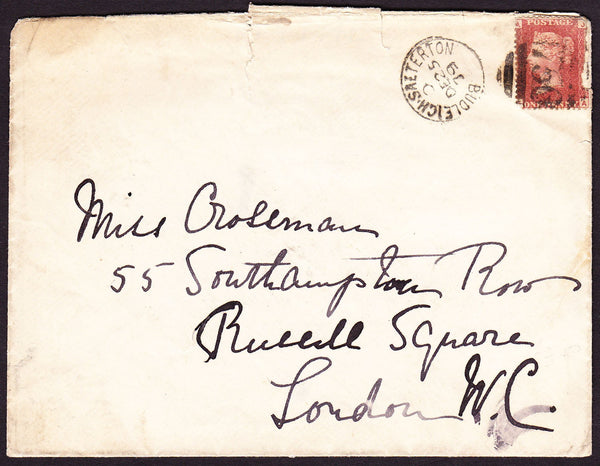 BUDLEIGH-SALTERTON
C
DE 25
79
POSTAGE
Miss Crossman
55 Southampton Row
Russell Square
London W.C.